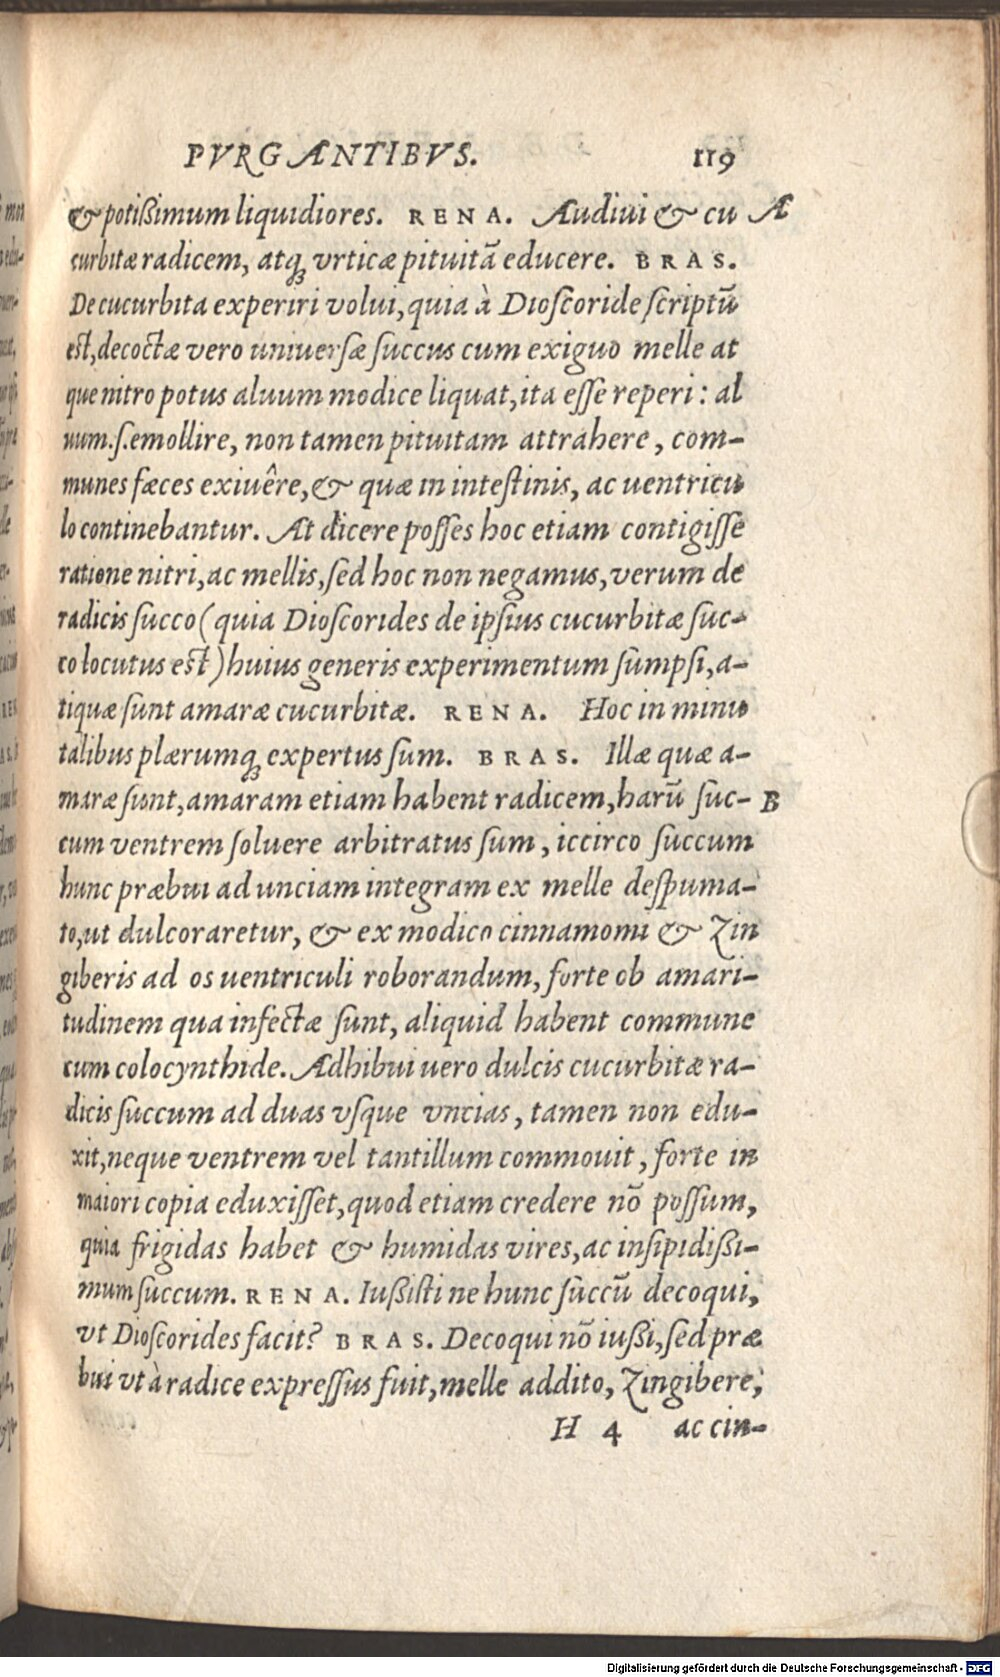 PVRGANTIBVS. 119
& potißimum liquidiores. RENA. Audiui & cu A
curbitæ radicem, atq; vrticæ pituitã educere. BRAS.
De cucurbita experiri volui, quia à Dioſcoride ſcriptũ
eſt, decoctæ vero uniuerſæ ſuccus cum exiguo melle at
que nitro potus aluum modice liquat, ita eſſe reperi: al
uum.ſ.emollire, non tamen pituitam attrahere, com-
munes fæces exiuêre, & quæ in inteſtinis, ac uentricu
lo continebantur. At dicere poſſes hoc etiam contigiſſe
ratione nitri, ac mellis, ſed hoc non negamus, verum de
radicis ſucco (quia Dioſcorides de ipſius cucurbitæ ſuc-
co locutus eſt) huius generis experimentum ſumpſi, a-
liquæ ſunt amaræ cucurbitæ. RENA. Hoc in minu
talibus plærumq; expertus ſum. BRAS. Illæ quæ a-
maræ ſunt, amaram etiam habent radicem, harũ ſuc- B
cum ventrem ſoluere arbitratus ſum, iccirco ſuccum
hunc præbui ad unciam integram ex melle deſpuma-
to, ut dulcoraretur, & ex modico cinnamomi & Zin
giberis ad os uentriculi roborandum, forte ob amari-
tudinem qua infectæ ſunt, aliquid habent commune
cum colocynthide. Adhibui uero dulcis cucurbitæ ra-
dicis ſuccum ad duas vſque vncias, tamen non edu-
xit, neque ventrem vel tantillum commouit, forte in
maiori copia eduxiſſet, quod etiam credere nõ poſſum,
quia frigidas habet & humidas vires, ac inſipidißi-
mum ſuccum. RENA. Iußiſti ne hunc ſuccũ decoqui,
vt Dioſcorides facit? BRAS. Decoqui nõ iußi, ſed præ
bui vt à radice expreſſus fuit, melle addito, Zingibere,
H 4 ac cin-
Digitalisierung gefördert durch die Deutsche Forschungsgemeinschaft - DFG